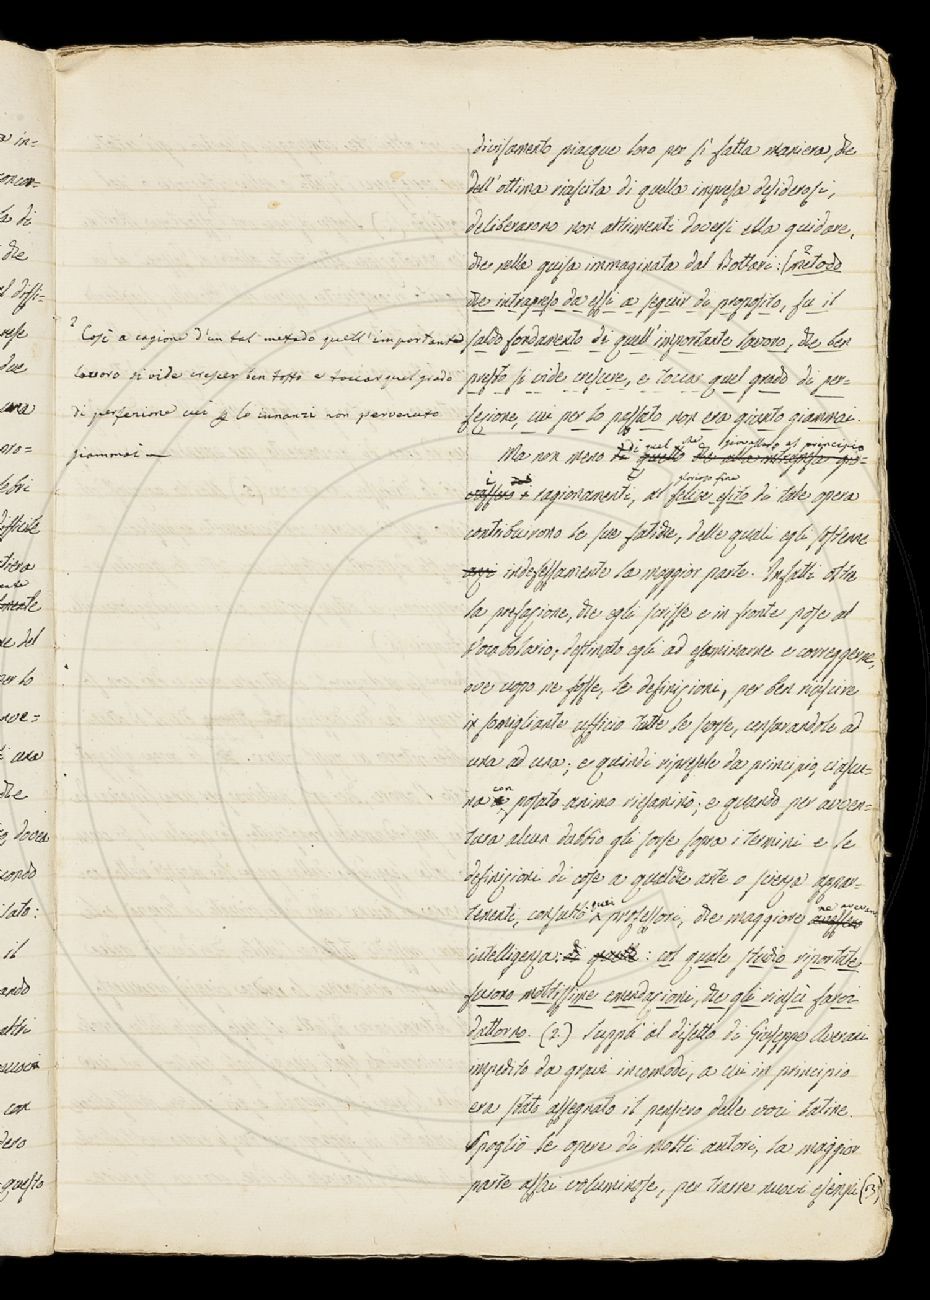 divisamento piacque loro per sì fatta maniera, che
dell'ottima riuscita di quella impresa desiderosi,
deliberarono non altrimenti doversi ella guidare,
che nella guisa immaginata dal Bottari: (metodo
che intrapreso da essi a seguir di proposito, fu il
saldo fondamento di quell'importante lavoro, che ben
presto si vide crescere, e toccar quel grado di per-
fezione, cui per lo passato non era giunto giammai.
2
Così a cagione d'un tal metodo quell'importante
lavoro si vide crescer ben tosto e toccar quel grado
di perfezione cui per lo innanzi non pervenuto
giammai —
di quel che giovassero al principio
Ma non meno di quello che alla intrapresa gio-
felice fine
vassero i ragionamenti, al felice esito di tale opera
contribuirono le sue fatiche, delle quali egli sostenne
anzi indefessamente la maggior parte. Infatti oltre
la prefazione, che egli scrisse e in fronte pose al
Vocabolario, destinato egli ad esaminarne e correggerne,
ove uopo ne fosse, le definizioni, per ben riuscire
in somigliante ufficio tutte le scorse, censurandole ad
una ad una; e quindi ripresele da principio, ciascu-
con
na a posato animo riesaminò; e quando per avven-
tura alcun dubbio gli sorse sopra i termini e le
definizioni di cose a qualche arte o scienza appar-
quei
ne avevano
tenenti, consultò professori, che maggiore avessero
intelligenza: di quelle: col quale studio riportate
furono moltissime emendazioni, che gli riuscì farci
dattorno. (2.) Supplì al difetto di Giuseppe Averani
impedito da gravi incomodi, a cui in principio
era stato assegnato il pensiero delle voci latine.
Spogliò le opere di molti autori, la maggior
parte assai voluminose, per trarre nuovi esempi (3)